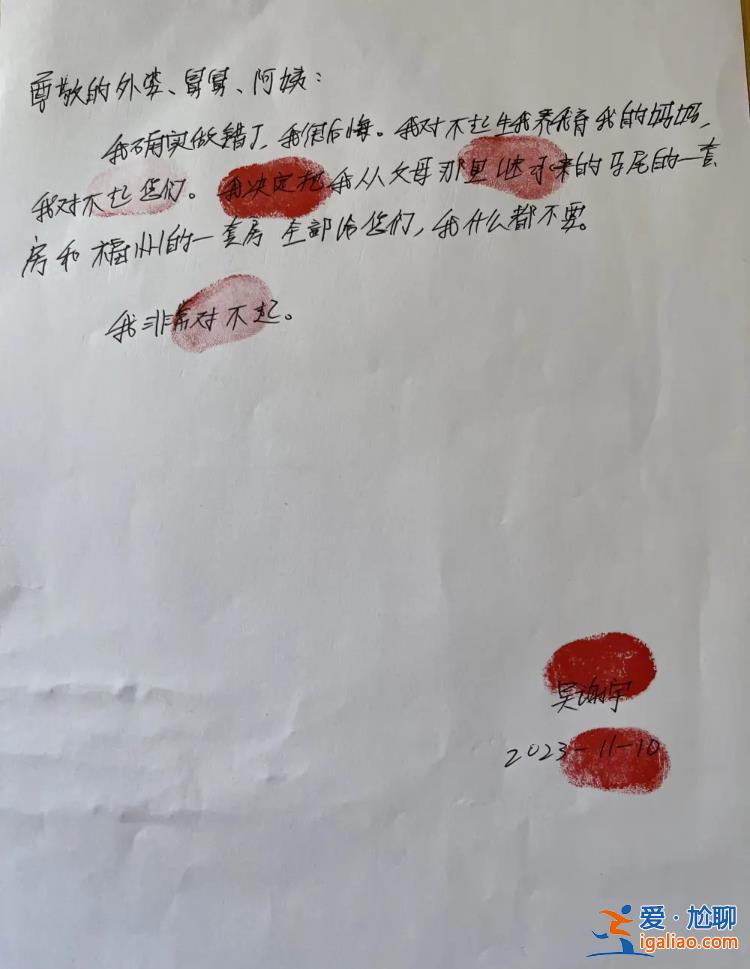 尊敬的外婆、舅舅、阿姨：
我确实做错了，我很后悔。我对不起生我养我育我的妈妈，
我对不起您们。我决定把我从父母那里继承来的马尾的一套
房和福州的一套房全部给您们，我什么都不要。
我非常对不起。
吴谢宇
2023-11-10
爱·尬聊
igaliao.com